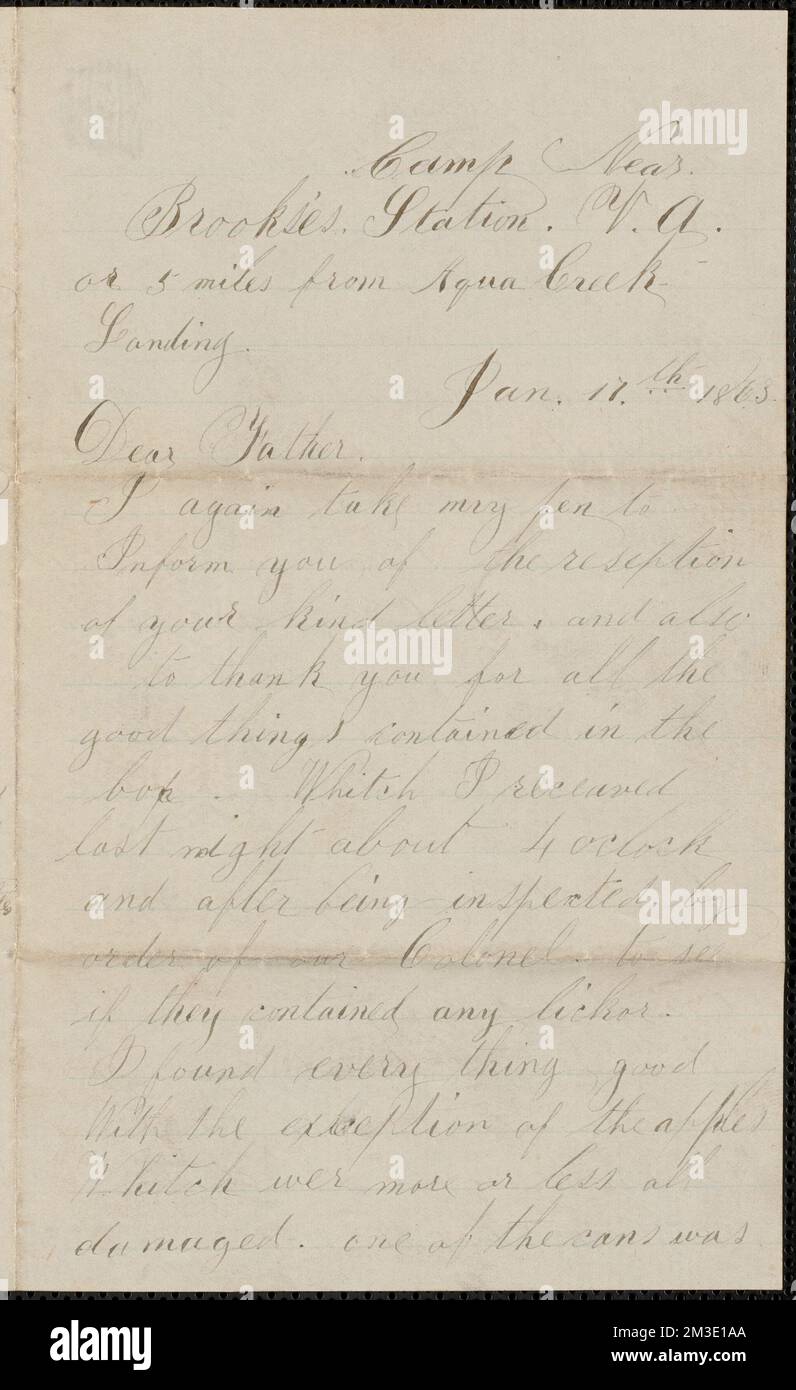 Camp Near.
Brooks'es. Station. V. A.
or 5 miles from Aqua Creek
Landing.
Jan. 17.th 1863.
Dear Father.
I again take my pen to
Inform you of the reseption
of your kind letter. and also
to thank you for all the
good things contained in the
box. Whitch I receaved
last night about 4 oclock
and after being inspected by
order of our Colonel to see
if they contained any lickor.
I found every thing good
With the exception of the apples
Whitch wer more or less all
damaged. one of the cans was
alamy
Image ID: 2M3E1AA
www.alamy.com